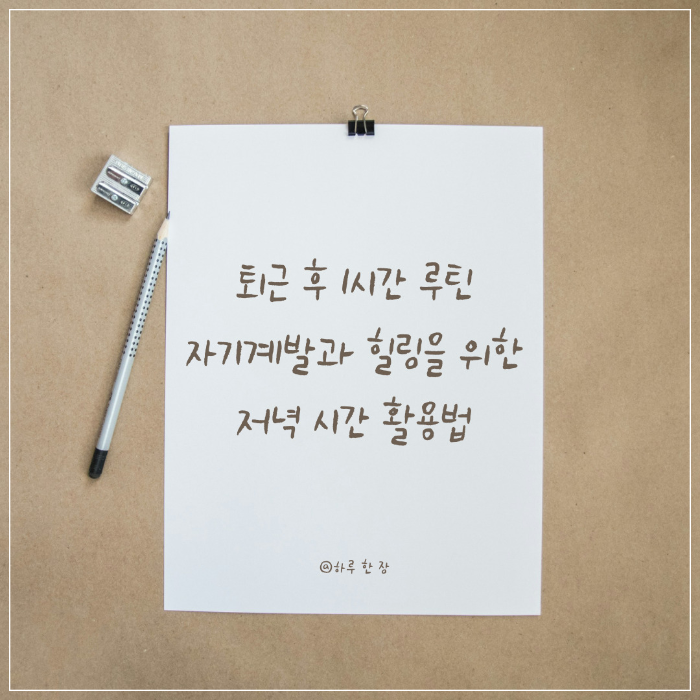 퇴근 후 1시간 루틴
자기계발과 힐링을 위한
저녁 시간 활용법
@하루 한 장